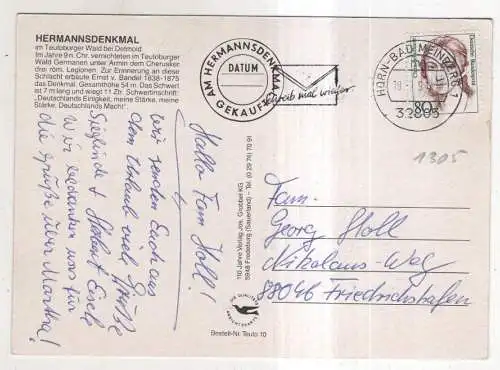 HERMANNSDENKMAL
im Teutoburger Wald bei Detmold
Im Jahre 9 n. Chr. vernichteten im Teutoburger
Wald Germanen unter Armin dem Cherusker
drei röm. Legionen. Zur Erinnerung an diese
Schlacht erbaute Ernst v. Bandel 1838-1875
das Denkmal. Gesamthöhe 54 m. Das Schwert
ist 7 m lang und wiegt 11 Ztr. Schwertinschrift:
„Deutschlands Einigkeit, meine Stärke, meine
Stärke, Deutschlands Macht!"
AM HERMANNSDENKMAL
DATUM
GEKAUFT
Schreib mal wieder
HORN-BAD MEINBERG 1
32805
80
Deutsche Bundespost
1305
Hallo Fam. Holl!
Wir senden Euch aus
dem Urlaub viele Grüße
Sieglinde +
Wir bedanken uns für
die Grüße über Martha!
Fam.
Georg Holl
Nikolaus-Weg
88046 Friedrichshafen
5948 Fredeburg (Sauerland)
DIE QUALITÄTS
ANSICHTSKARTE
Bestell-Nr. Teuto 10